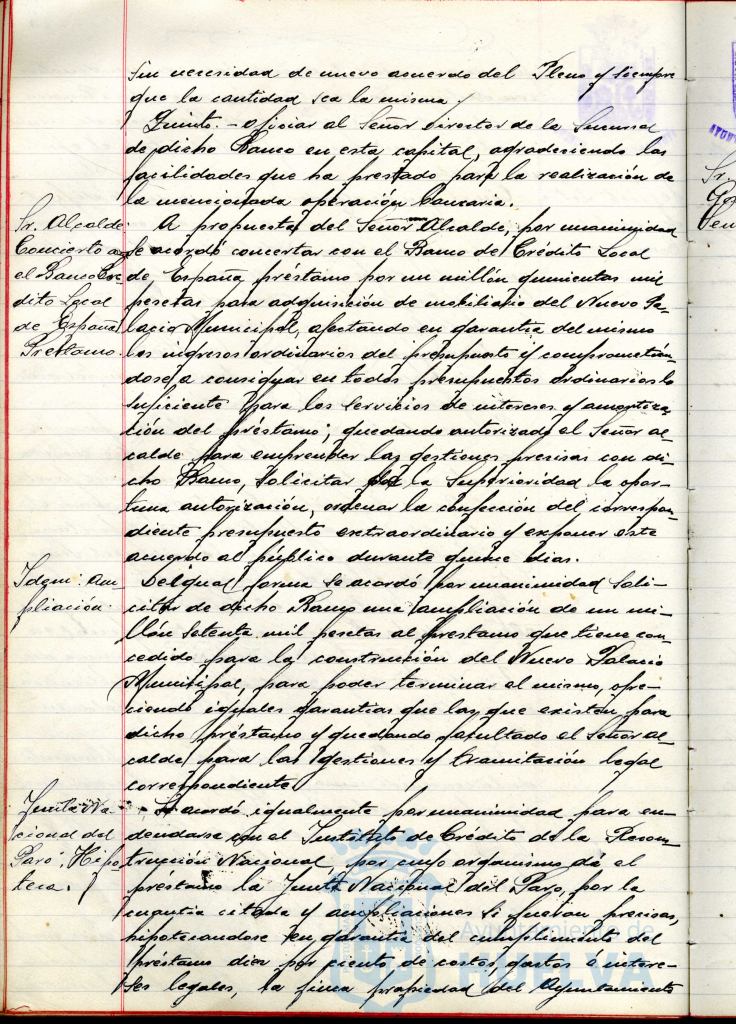 sin necesidad de nuevo acuerdo del Pleno y siempre
que la cantidad sea la misma.
Quinto.- Oficiar al Señor Director de la Sucursal
de dicho Banco en esta capital, agradeciendo las
facilidades que ha prestado para la realización de
la mencionada operación bancaria.
Sr. Alcalde
Concierto con
el Banco Cré-
dito Local
de España
Prestamo.
A propuesta del Señor Alcalde, por unanimidad
se acordó concertar con el Banco de Crédito Local
de España préstamo por un millón quinientas mil
pesetas para adquisición de mobiliario del Nuevo Pa-
lacio Municipal, afectando en garantía del mismo
los ingresos ordinarios del presupuesto y comprometién-
dose a consignar en todos presupuestos ordinarios lo
suficiente para los servicios de intereses y amortiza-
ción del préstamo; quedando autorizado el Señor al-
calde para emprender las gestiones precisas con di-
cho Banco, solicitar de la Superioridad la opor-
tuna autorización, ordenar la confección del correspon-
diente presupuesto extraordinario y exponer este
acuerdo al público durante quince días.
Idem: Am-
pliación.
De igual forma se acordó por unanimidad soli-
citar de dicho Banco una ampliación de un mi-
llón setenta mil pesetas al prestamo que tiene con-
cedido para la construcción del Nuevo Palacio
Municipal, para poder terminar el mismo, ofre-
ciendo iguales garantías que las que existen para
dicho préstamo y quedando facultado el Señor al-
calde para las gestiones y tramitación legal
correspondiente
Junta Na-
cional del
Paro. Hipo-
teca.
Se acordó igualmente por unanimidad para en-
deudarse con el Instituto de Crédito de la Recons-
trucción Nacional, por cuyo organismo dé el
préstamo la Junta Nacional del Paro, por la
cuantía citada y ampliaciones si fueran precisas,
hipotecandose en garantía del cumplimiento del
préstamo diez por ciento de costos, gastos e intere-
ses legales, la finca propiedad del Ayuntamiento
Ayuntamiento de
HUELVA
Sr.